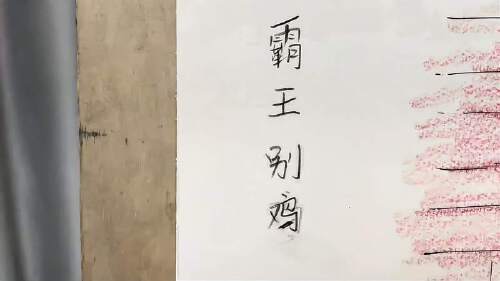 霸王别鸡